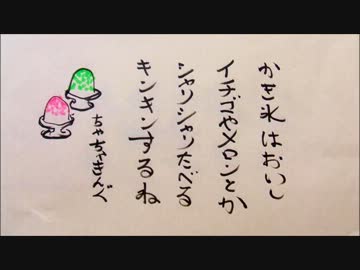 かき氷はおいし
イチゴやメロンとか
シャリシャリたべる
キンキンするね
ちゃちゃきんぐ